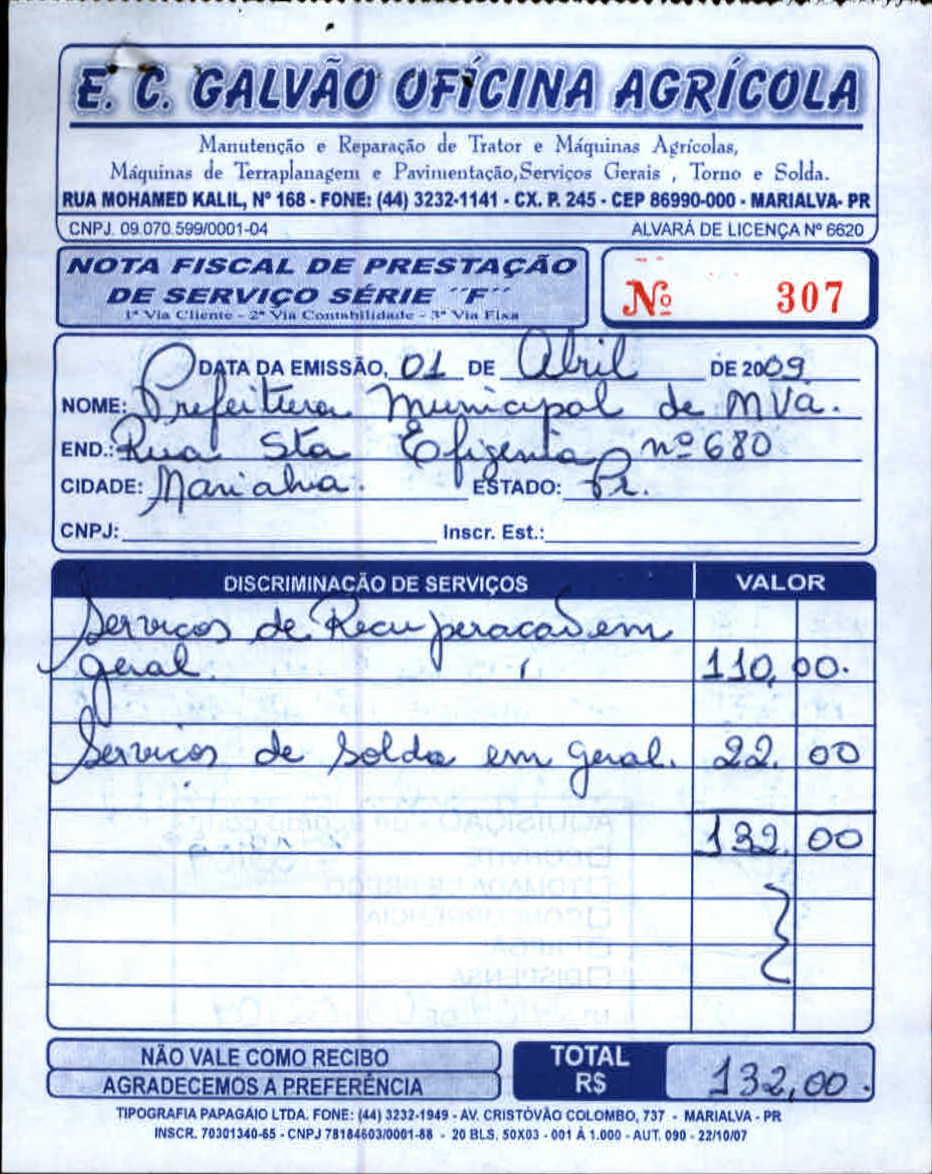 E. C. GALVÃO OFÍCINA AGRÍCOLA
Manutenção e Reparação de Trator e Máquinas Agrícolas,
Máquinas de Terraplanagem e Pavimentação,Serviços Gerais , Torno e Solda.
RUA MOHAMED KALIL, Nº 168 - FONE: (44) 3232-1141 - CX. P. 245 - CEP 86990-000 - MARIALVA- PR
CNPJ. 09.070.599/0001-04 ALVARÁ DE LICENÇA Nº 6620
NOTA FISCAL DE PRESTAÇÃO
DE SERVIÇO SÉRIE "F"
1ª Via Cliente - 2ª Via Contabilidade - 3ª Via Fixa
Nº 307
DATA DA EMISSÃO, 01 DE Abril DE 2009
NOME: Prefeitura Municipal de MVA.
END.: Rua Sta Efigenia nº 680
CIDADE: Marialva. ESTADO: Pr.
CNPJ: Inscr. Est.:
DISCRIMINAÇÃO DE SERVIÇOS VALOR
Serviços de Recuperação em
geral. 110,00.
Serviços de Solda em geral. 22.00
132.00
NÃO VALE COMO RECIBO
AGRADECEMOS A PREFERÊNCIA
TOTAL
R$ 132,00.
TIPOGRAFIA PAPAGAIO LTDA. FONE: (44) 3232-1949 - AV. CRISTÓVÃO COLOMBO, 737 - MARIALVA - PR
INSCR. 70301340-65 - CNPJ 78184603/0001-88 - 20 BLS. 50X03 - 001 À 1.000 - AUT. 090 - 22/10/07